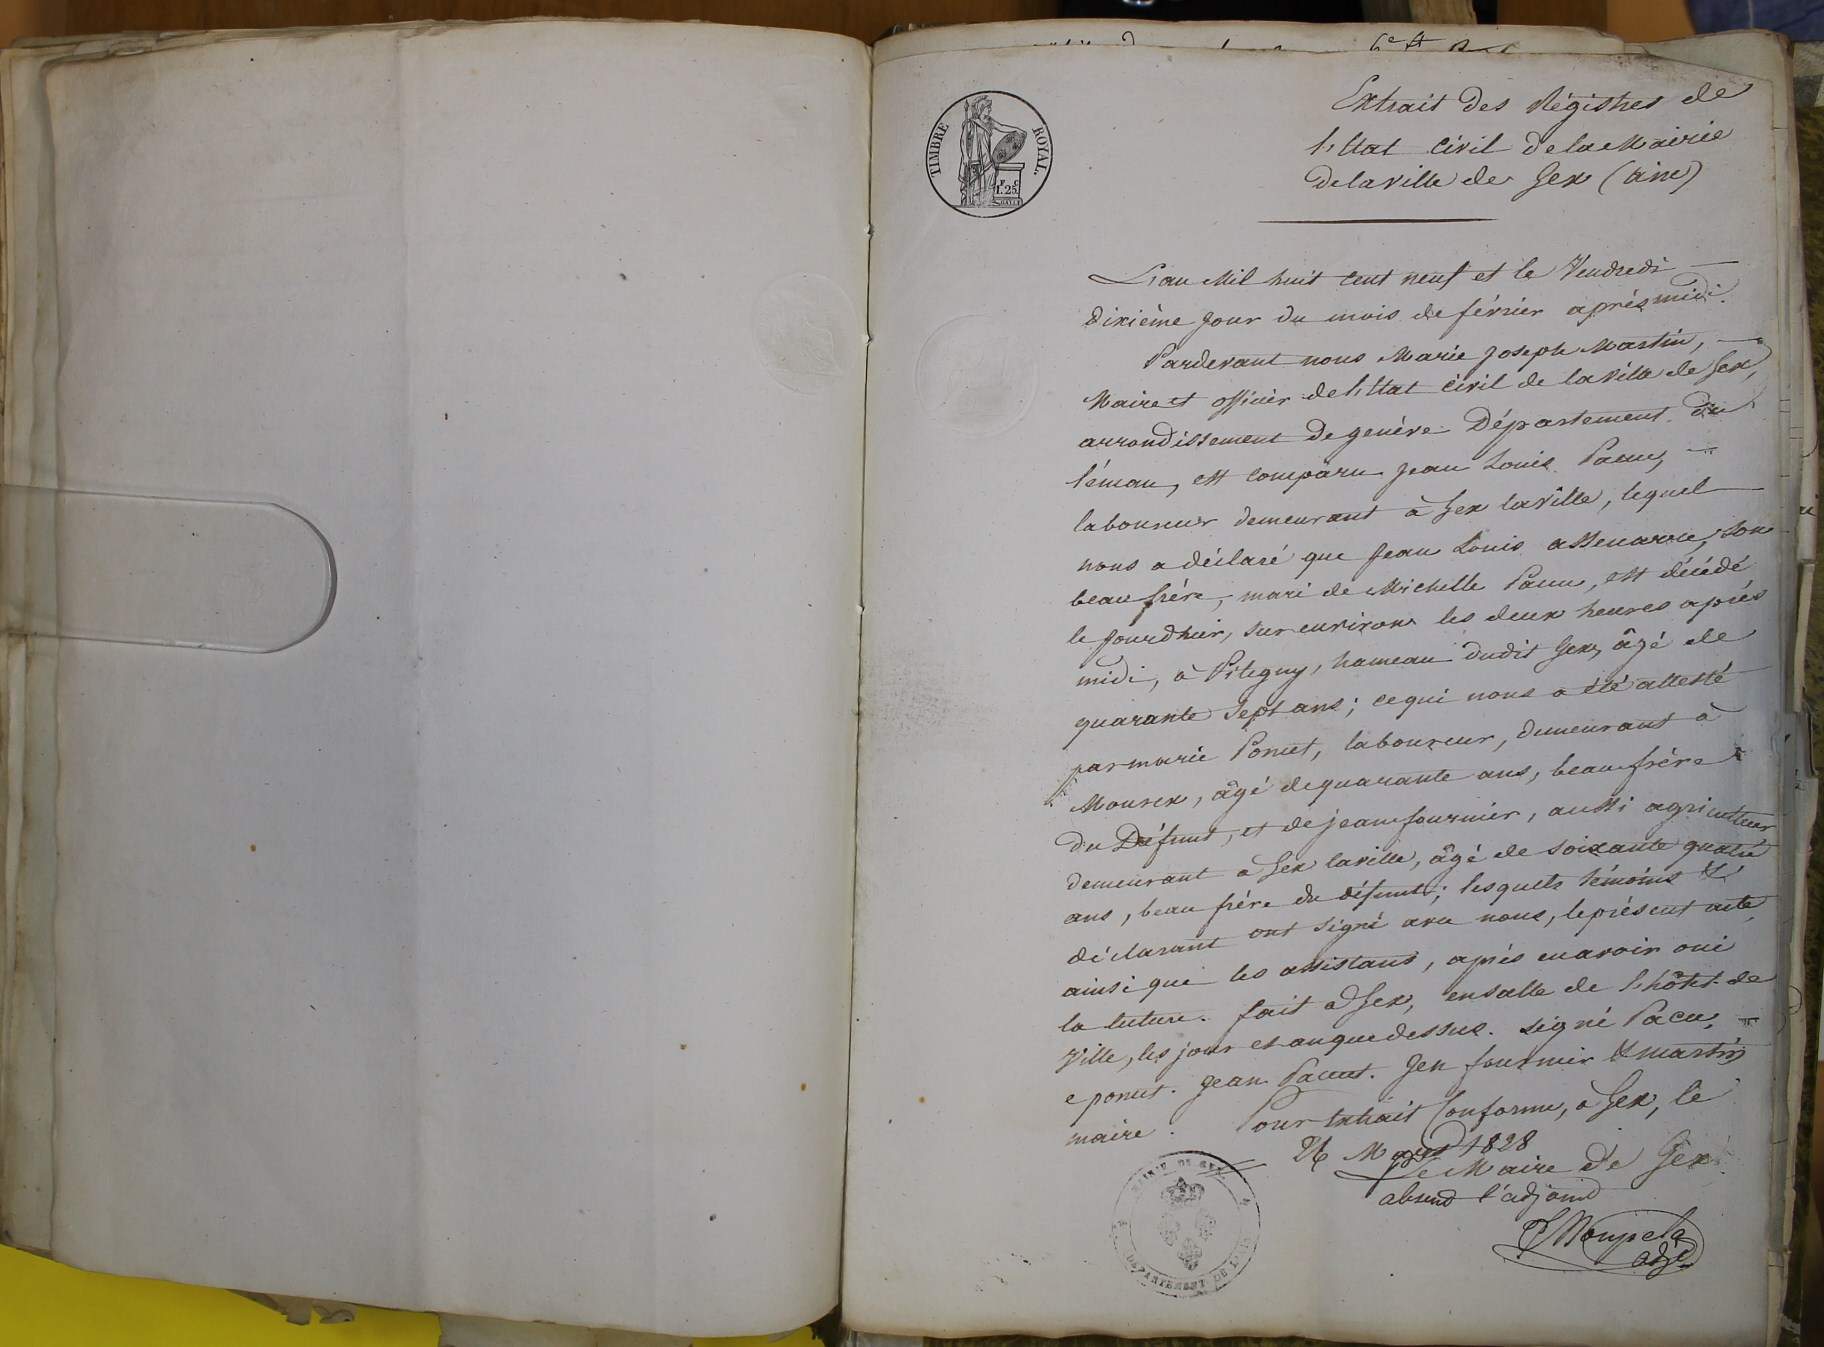 TIMBRE ROYAL.
F. C.
1.25
Extrait des Régistres de
l'Etat civil de la Mairie
de la ville de Gex (ain)
L'an Mil huit cent neuf et le Vendredi
dixième jour du mois de février après midi.
Pardevant nous Marie Joseph Martin,
Maire et officier de l'Etat civil de la ville de Gex,
arrondissement de genève Département du
léman, est comparu Jean Louis Pacu,
laboureur demeurant à Gex la ville, lequel
nous a déclaré que Jean Louis assenarre, son
beau frère, mari de Michelle Pacu, est décédé
le jourdhui, sur environ les deux heures après
midi, à Pitegny, hameau dudit Gex, âgé de
quarante sept ans; ce qui nous a été attesté
par marie Ponut, laboureur, demeurant à
Mourex, âgé de quarante ans, beau frère
du Défunt, et de jean fournier, aussi agriculteur
demeurant à Gex la ville, âgé de soixante quatre
ans, beau frère du défunt; lesquels témoins &
déclarant ont signé avec nous, le présent acte,
ainsi que les assistans, après en avoir oui
la lecture. fait à Gex, en salle de l'hôtel de
Ville, les jour et an que dessus. signé Pacu,
e ponut. Jean Pacut. Jen fournier & martin
maire. Pour Extrait Conforme, à Gex, le
26 Mars 1828
Le Maire de Gex
absend l'adjoind
MAIRIE DE GEX
DEPARTEMENT DE L'AIN
adjt